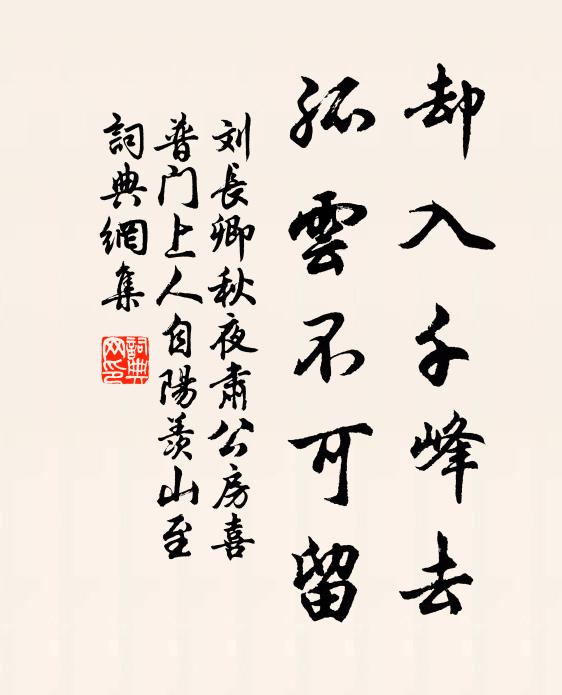 却入千峰去
孤雲不可留
刘長卿秋夜肃公房喜
普门上人自陽羡山至
詞典網集
詞典网印